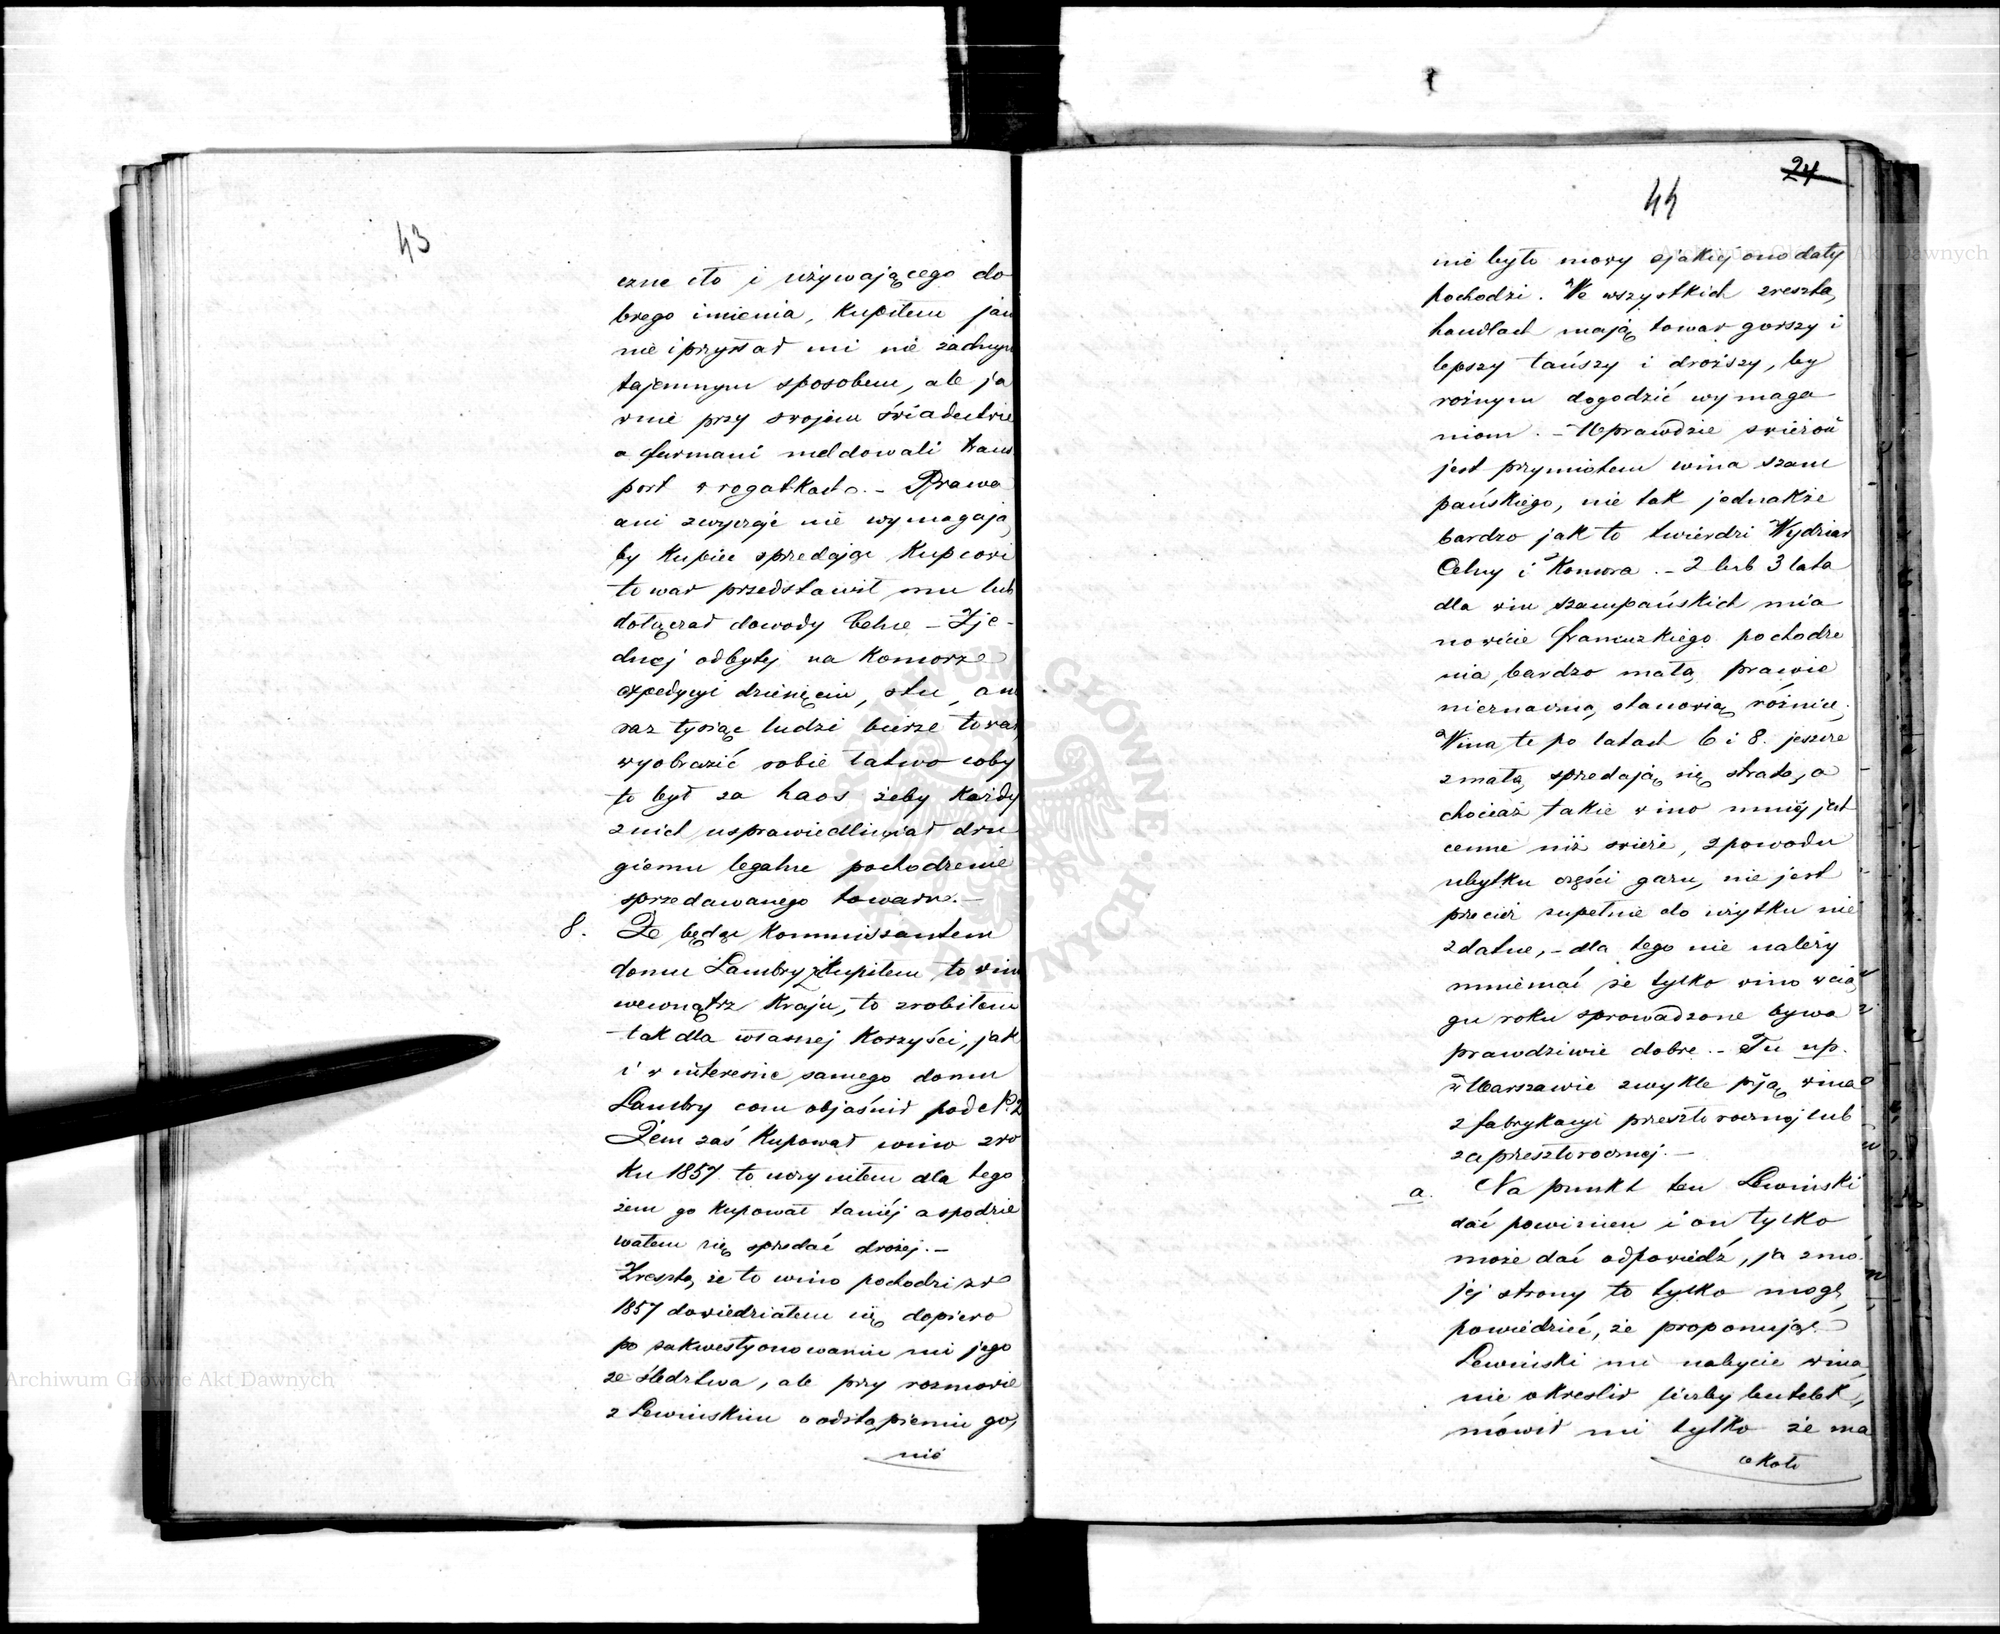 43
czne cło i używającego do
brego imienia, kupiłem jaw
nie i przysłał mi nie żadnym
tajemnym sposobem, ale ja
wnie przy swojem świadectwie
a furmani meldowali trans
port w rogatkach. – Prawa
ani zwyczaje nie wymagają
by kupiec sprzedając kupcowi
towar przedstawił mu lub
dołączał dowody Celne – Zje-
dnej odbytej na Komorze
expedycyi dziesięciu, stu, a n
raz tysiąc ludzi bierze towar,
wyobrazić sobie łatwo coby
to był za haos żeby każdy
z nich usprawiedliwiał dru
giemu legalne pochodzenie
sprzedawanego towaru. –
8. Że będąc Kommissantem
domu Lambry kupiłem to wino
wewnątrz Kraju, to zrobiłem
tak dla własnej korzyści, jak
i w interesie samego domu
Lambry com objaśnił pod № 2
Żem zaś kupował wino z ro
ku 1857 to uczyniłem dla tego
żem go kupował taniéj a spodzie
wałem się sprzedać drożej. –
Zresztą, że to wino pochodzi z r
1857 dowiedziałem się dopiero
po zakwestyonowaniu mi jego
ze śledztwa, ale przy rozmowie
z Lewinskim o odstąpieniu go,
nie
24
44
nie było mowy z jakiéj ono daty
pochodzi. We wszystkich zresztą
handlach mają towar gorszy i
lepszy tańszy i droższy, by
rożnym dogodzić wymaga-
niom. – Wprawdzie swieżość
jest przymiotem wina szam
pańskiego, nie tak jednakże
bardzo jak to twierdzi Wydział
Celny i Komora. – 2 lub 3 lata
dla win szampańskich mia
nowicie francuzkiego pochodze
nia, bardzo małą, prawie
nieznaczną stanowią różnicę.
Wina te po latach 6 i 8. jeszcze
z małą sprzedają się stratą, a
chociaż takie wino mniéj jest
cenne niż swieże, z powodu
ubytku części gazu, nie jest
przecież zupełnie do użytku nie
zdatne, – dla tego nie należy
mniemać że tylko wino w cią
gu roku sprowadzone bywa
prawdziwie dobre. – Tu np.
w Warszawie zwykle piją wina
z fabrykacyi przeszłorocznej lub
zaprzeszłorocznej. –
a. Na punkt ten Lewinski
dać powinien i on tylko
może dać odpowiedź, ja z mo
jej strony to tylko mogę
powiedzieć, że proponując
Lewinski mi nabycie wina,
nie określił liczby butelek,
mówił mi tylko że ma
około
Archiwum Główne Akt Dawnych
Archiwum Główne Akt Dawnych
ARCHIWUM GŁÓWNE AKT DAWNYCH